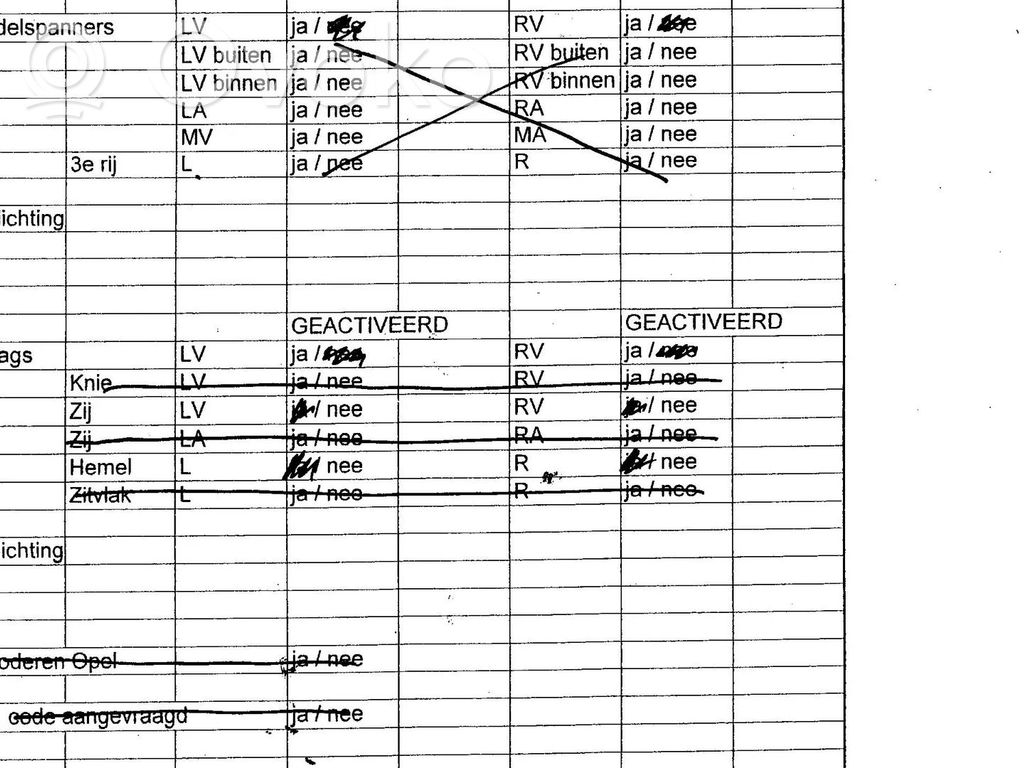 delspanners LV ja / RV ja /
LV buiten ja / nee RV buiten ja / nee
LV binnen ja / nee RV binnen ja / nee
LA ja / nee RA ja / nee
MV ja / nee MA ja / nee
3e rij L ja / nee R ja / nee
ichting
GEACTIVEERD GEACTIVEERD
ags LV ja / RV ja /
Knie LV ja / nee RV ja / nee
Zij LV / nee RV / nee
Zij LA ja / nee RA ja / nee
Hemel L nee R nee
Zitvlak L ja / nee R ja / nee
ichting
oderen Opel ja / nee
code aangevraagd ja / nee